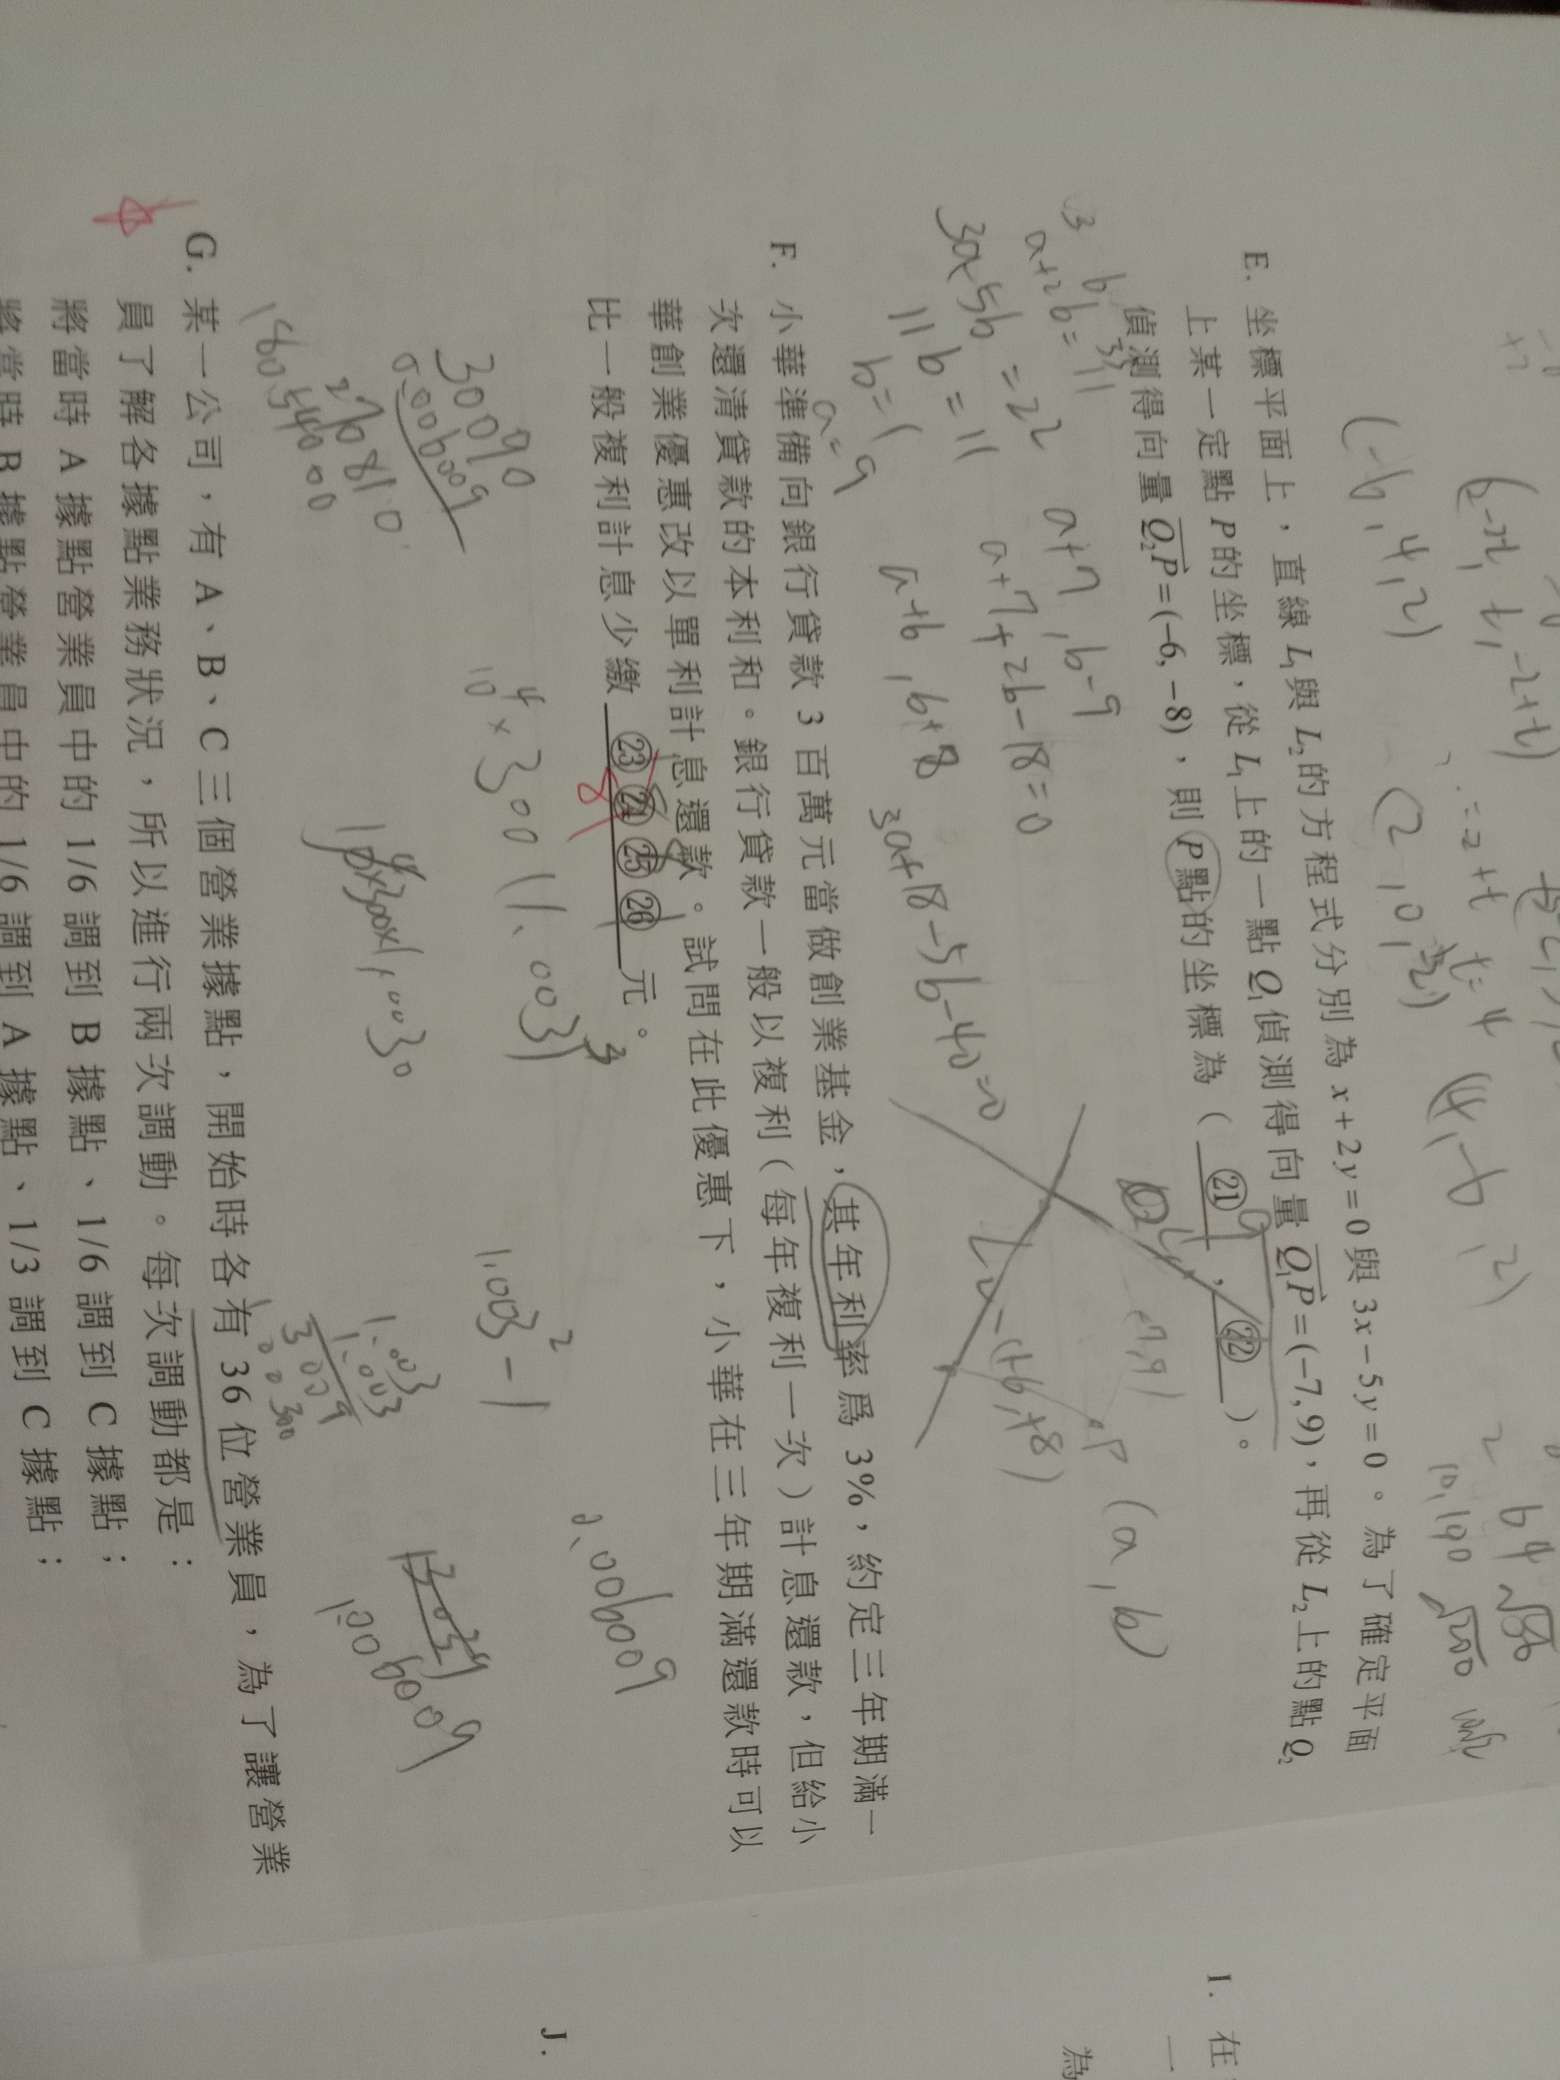 (-6, 4, 2)
(2, 0, -2)
(4, -6, 2)
E. 坐標平面上，直線 L₁與 L₂的方程式分別為 x + 2y = 0 與 3x − 5y = 0。為了確定平面
上某一定點 P 的坐標，從 L₁上的一點 Q₁偵測得向量 Q₁P = (−7, 9)，再從 L₂上的點 Q₂
偵測得向量 Q₂P = (−6, −8)，則 P 點的坐標為（ ㉑ ， ㉒ ）。
a+2b=11
3a-5b=22
11b=11
b=1
a=9
a+7, b-9
a+7+2b-18=0
a+6, b+8
3a+18-5b-40=0
P (a, b)
F. 小華準備向銀行貸款 3 百萬元當做創業基金，其年利率為 3%，約定三年期滿一
次還清貸款的本利和。銀行貸款一般以複利（每年複利一次）計息還款，但給小
華創業優惠改以單利計息還款。試問在此優惠下，小華在三年期滿還款時可以
比一般複利計息少繳 ㉓㉔㉕㉖ 元。
10⁴×300(1.003)³
1.003²-1
0.006009
30090
0.006009
270810
1805400 00
1.003
1.003
3009
1.006009
G. 某一公司，有 A、B、C 三個營業據點，開始時各有 36 位營業員，為了讓營業
員了解各據點業務狀況，所以進行兩次調動。每次調動都是：
將當時 A 據點營業員中的 1/6 調到 B 據點、1/6 調到 C 據點；
將當時 B 據點營業員中的 1/6 調到 A 據點、1/3 調到 C 據點；
I. 在
一
為
J.